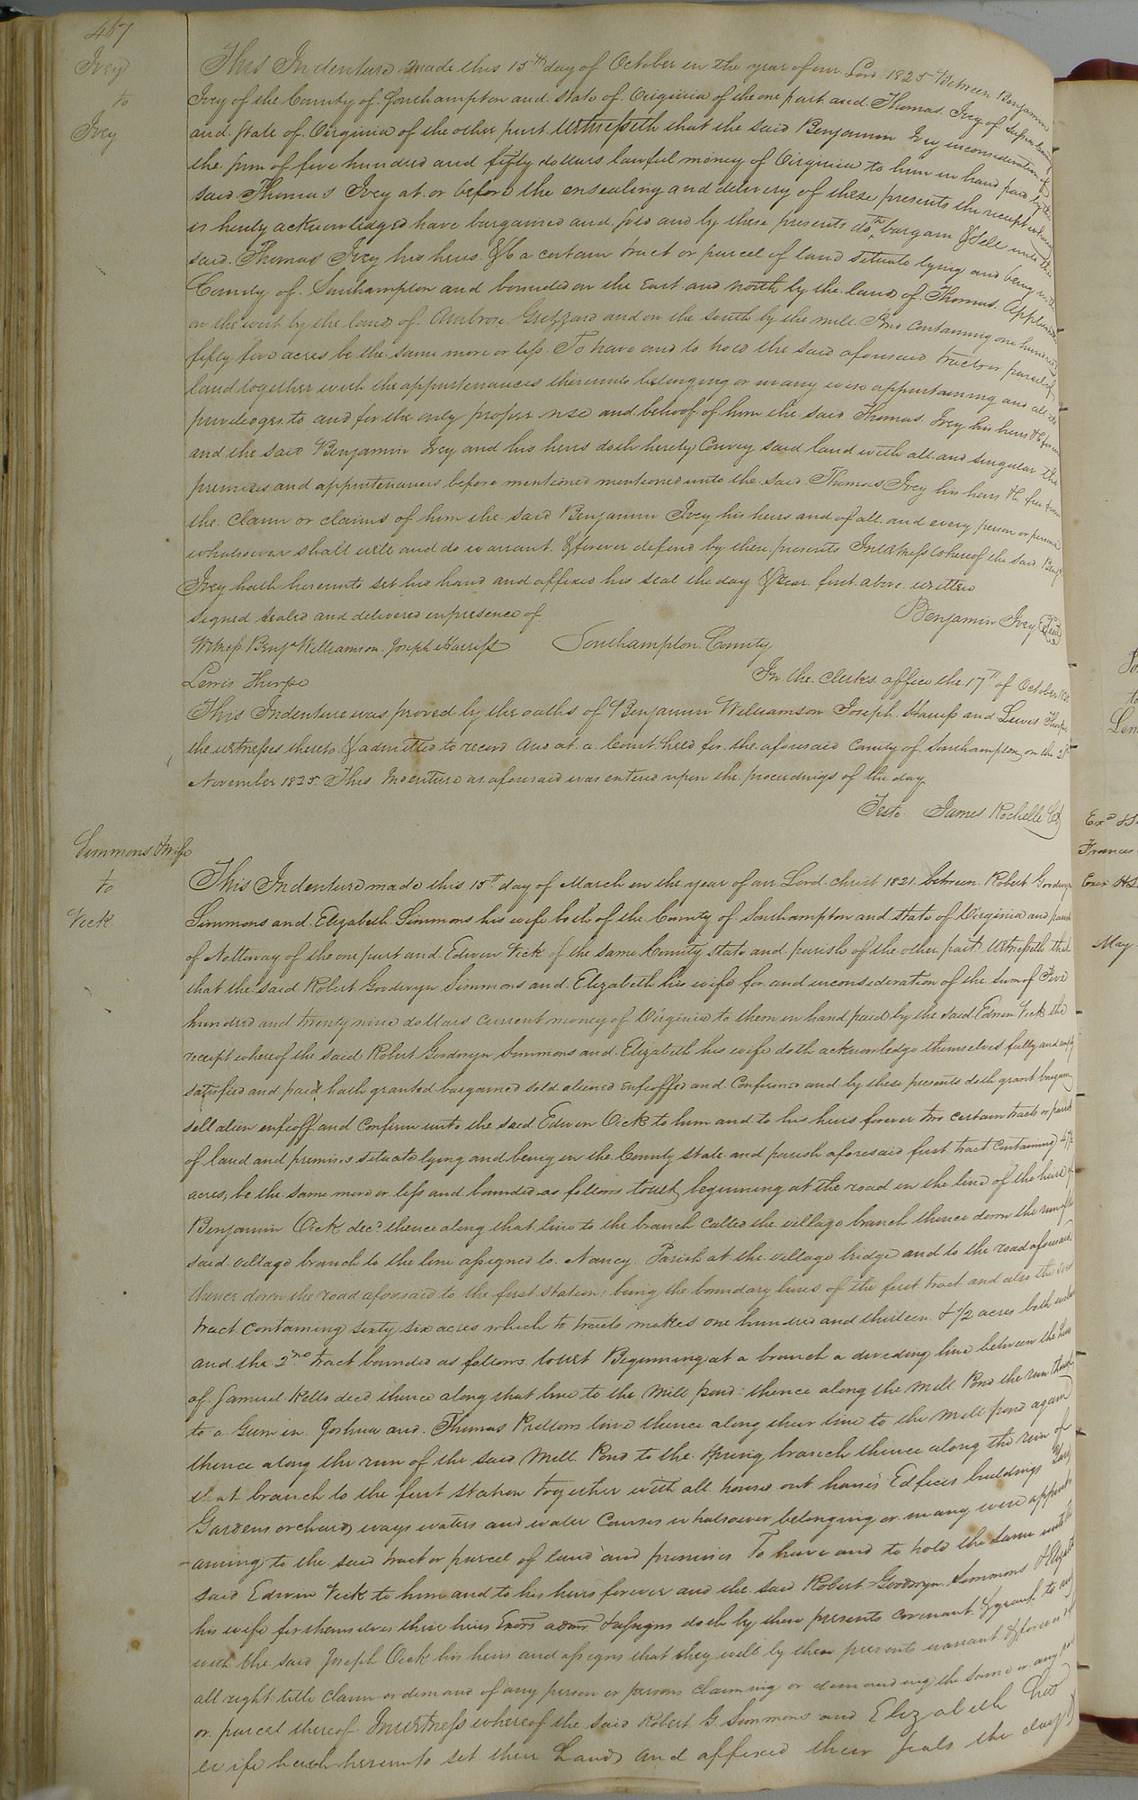 467
Ivey
to
Ivey
This Indenture made this 15th day of October in the year of our Lord 1825 Between Benjamin
Ivey of the County of Southampton and State of Virginia of the one part and Thomas Ivey of
and State of Virginia of the other part Witnesseth that the said Benjamin Ivey inconsideration of
the sum of five hundred and fifty dollars lawful money of Virginia to him in hand paid by the
said Thomas Ivey at or before the ensealing and delivery of these presents the receipt whereof
is hereby acknowledged have bargained and sold and by these presents doth bargain & sell unto the
said Thomas Ivey his heirs &c a certain tract or parcel of land situate lying and being in the
County of Southampton and bounded on the East and north by the land of Thomas Applewhite
on the west by the land of Ambrose Grizzard and on the South by the mill Pond containing one hundred
fifty five acres be the same more or less To have and to hold the said aforesaid tract or parcel of
land together with the appurtenances thereunto belonging or in any wise appertaining and all its
priviledges to and for the only proper use and behoof of him the said Thomas Ivey his heirs &c
and the said Benjamin Ivey and his heirs doth hereby Convey said land with all and singular the
premises and appurtenances before mentioned mentioned unto the said Thomas Ivey his heirs &c free from
the claim or claims of him the said Benjamin Ivey his heirs and of all and every person or persons
whatsoever shall will and do warrant & forever defend by these presents In witness whereof the said Benja
Ivey hath hereunto set his hand and affixed his seal the day & year first above written
Signed sealed and delivered in presence of
Benjamin Ivey Seal
Witness Benja Williamson Joseph Harriss
Southampton County
Lewis Thorpe
In the Clerks office the 17th of October 1825
This Indenture was proved by the oaths of Benjamin Williamson Joseph Harriss and Lewis Thorpe
the witnesses thereto & admitted to record And at a Court held for the aforesaid County of Southampton on the 21st
November 1825 This Indenture as aforesaid was entered upon the proceedings of the day
Teste James Rochelle Clk
Simmons & wife
to
Vick
This Indenture made this 15th day of March in the year of our Lord christ 1821 between Robert Goodwyn
Simmons and Elizabeth Simmons his wife both of the County of Southampton and State of Virginia and parish
of Nottoway of the one part and Edwin Vick of the same County state and parish of the other part Witnesseth that
that the said Robert Goodwyn Simmons and Elizabeth his wife for and inconsideration of the sum of Five
hundred and twenty nine dollars current money of Virginia to them in hand paid by the said Edwin Vick the
receipt whereof the said Robert Goodwyn Simmons and Elizabeth his wife doth acknowledge themselves fully and
satisfied and paid hath granted bargained sold aliened enfeoffed and Confirmed and by these presents doth grant bargain
sell alien enfeoff and Confirm unto the said Edwin Vick to him and to his heirs forever two certain tracts or parcels
of land and premises situate lying and being in the County state and parish aforesaid first tract Containing 47½
acres, be the same more or less and bounded as follows towit, beginning at the road in the line of the heirs of
Benjamin Vick decd thence along that line to the branch called the village branch thence down the run of the
said village branch to the line assigned to Nancy Parish at the village bridge and to the road aforesaid
thence down the road aforesaid to the first station, being the boundary lines of the first tract and also the 2nd
tract Containing sixty six acres which to tracts makes one hundred and thirteen & 1/2 acres both
and the 2nd tract bounded as follows towit Beginning at a branch a dividing line between the
of Samuel Kello decd thence along that line to the Mill pond thence along the Mill Pond the run
to a Gum in Joshua and Thomas Pretlows line thence along their line to the Mill pond again
thence along the run of the said Mill Pond to the Spring branch thence along the run of
that branch to the first station together with all houses out houses Edfices buildings
Gardens orchards ways waters and water Courses whatsoever belonging or in any wise appert
aining to the said tract or parcel of land and premises To have and to hold the same unto the
said Edwin Vick to him and to his heirs forever and the said Robert Goodwyn Simmons &
his wife for themselves their heirs Exors admrs & assigns doth by these presents covenant & grant to and
with the said Joseph Vick his heirs and assigns that they will by these presents warrant & forever
all right title claim or demand of any person or persons claiming or demanding the same or any part
or parcel thereof In witness whereof the said Robert G Simmons and Elizabeth his
wife hath hereunto set their hands and affixed their seals the day
to
Frances
May